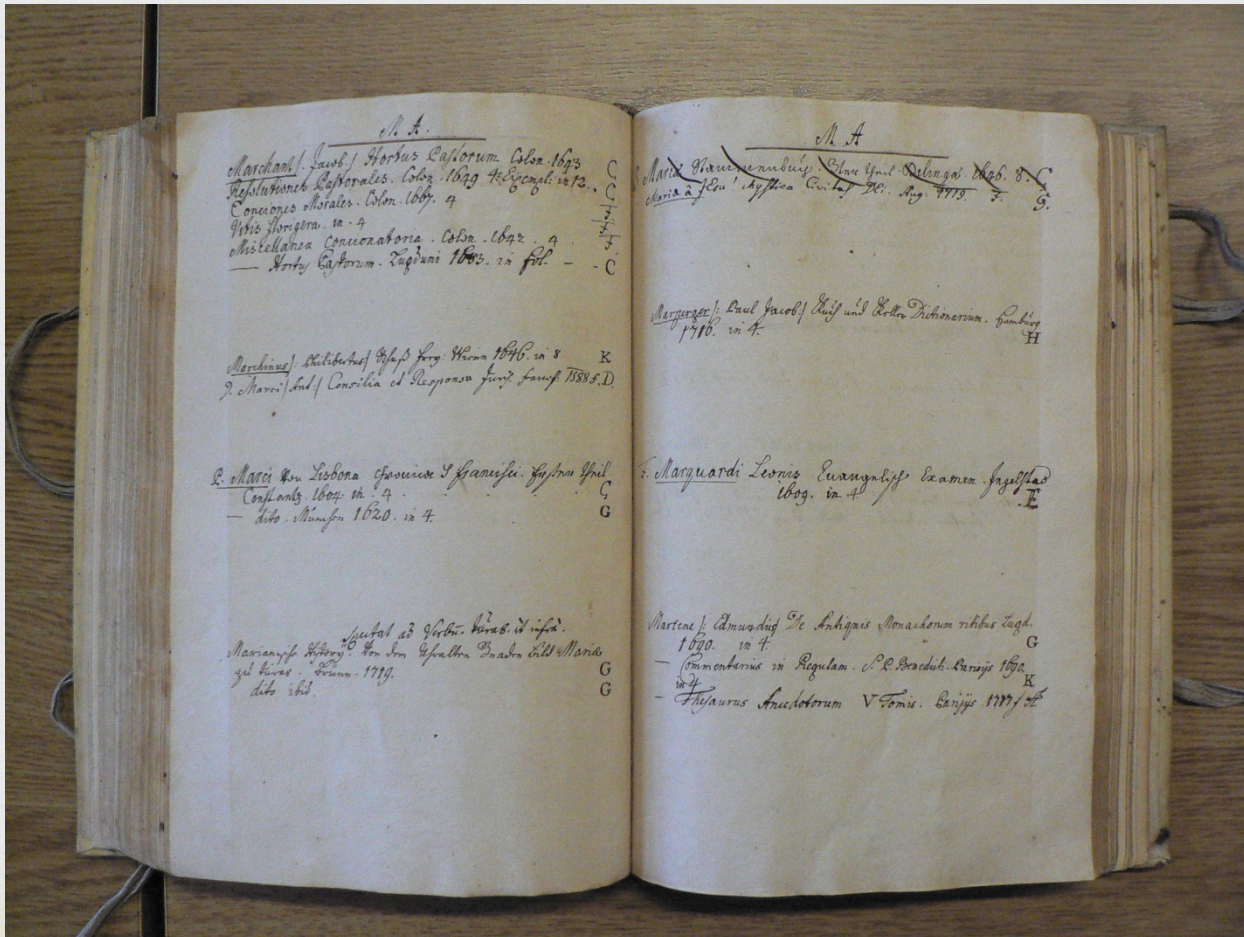 M A.
Marchant /: Jacob :/ Hortus Pastorum Colon. 1643 C
Resolutiones Pastorales. Colon. 1649 4 Exempl: in 12. C
Conciones Morales. Colon. 1667. 4
Vitis florigera. in. 4
Miscellanea Concionatoria. Colon. 1642. 4
— Hortus Pastorum. Lugduni 1683. in fol. — C
Marchinus /: Philibertus / 1646. in 8 K
Marci / Ant: / Consilia et Responsa Jury. francf. 1588 f. D.
P. Marci von Lisbona Chronicae S Francisci. Ersten Theil
Constantz. 1604. in. 4. G
— dito. München 1620. in 4. G
Spectat ad Verbu. Turas. ut infra.
Marianische Von dem Uhralten Gnaden Bild Mariae
zu Turas. Brünn. 1719. G
dito ibid. G
M A
Maria 1646. 8. G
Maria â Jesu Mystica Civitas Dei. Aug. 1719 G.
Marperger /: Paul Jacob :/ Küch und Keller Dictionarium. Hamburg
1716. in 4. H
Marquardi Leonis Euangelisch Examen. Ingolstad
1609. in 4 E
Martene /: Edmundus De Antiquis Monachorum ritibus Lugd.
1690. in 4. G
— Commentarius in Regulam. S. P. Benedicti. Parisijs 1690.
in 4 K
— Thesaurus Anecdotorum V Tomis. Parisijs 1717 f A